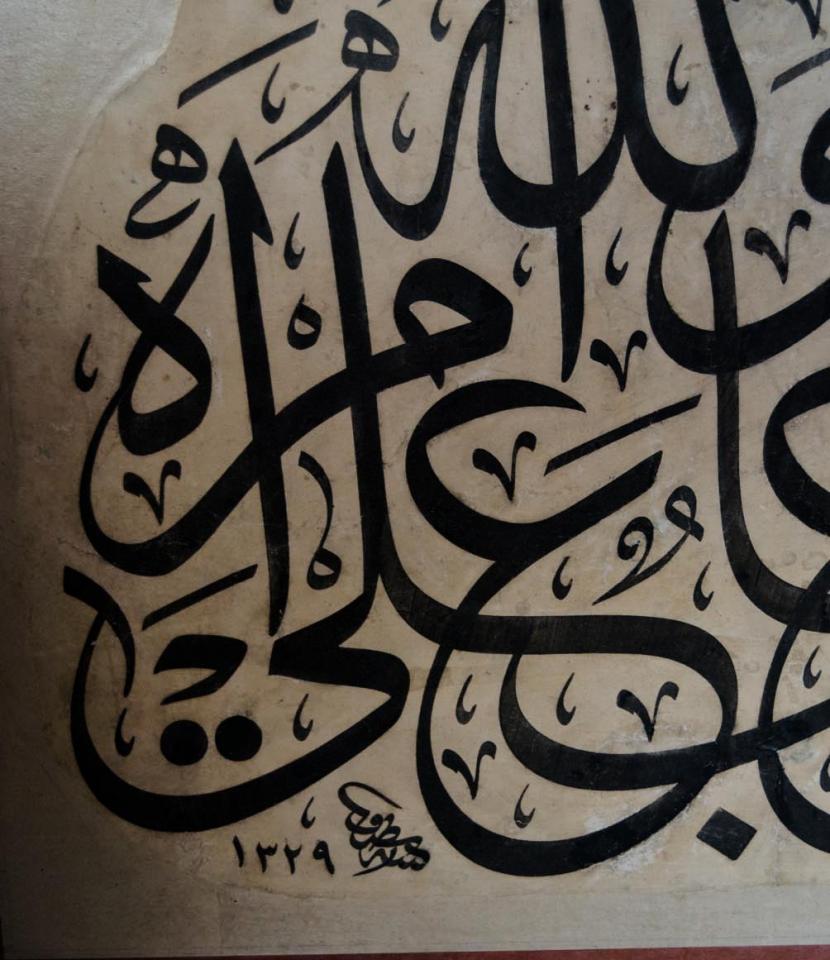 والله
غالب على أمره
١٣٢٩